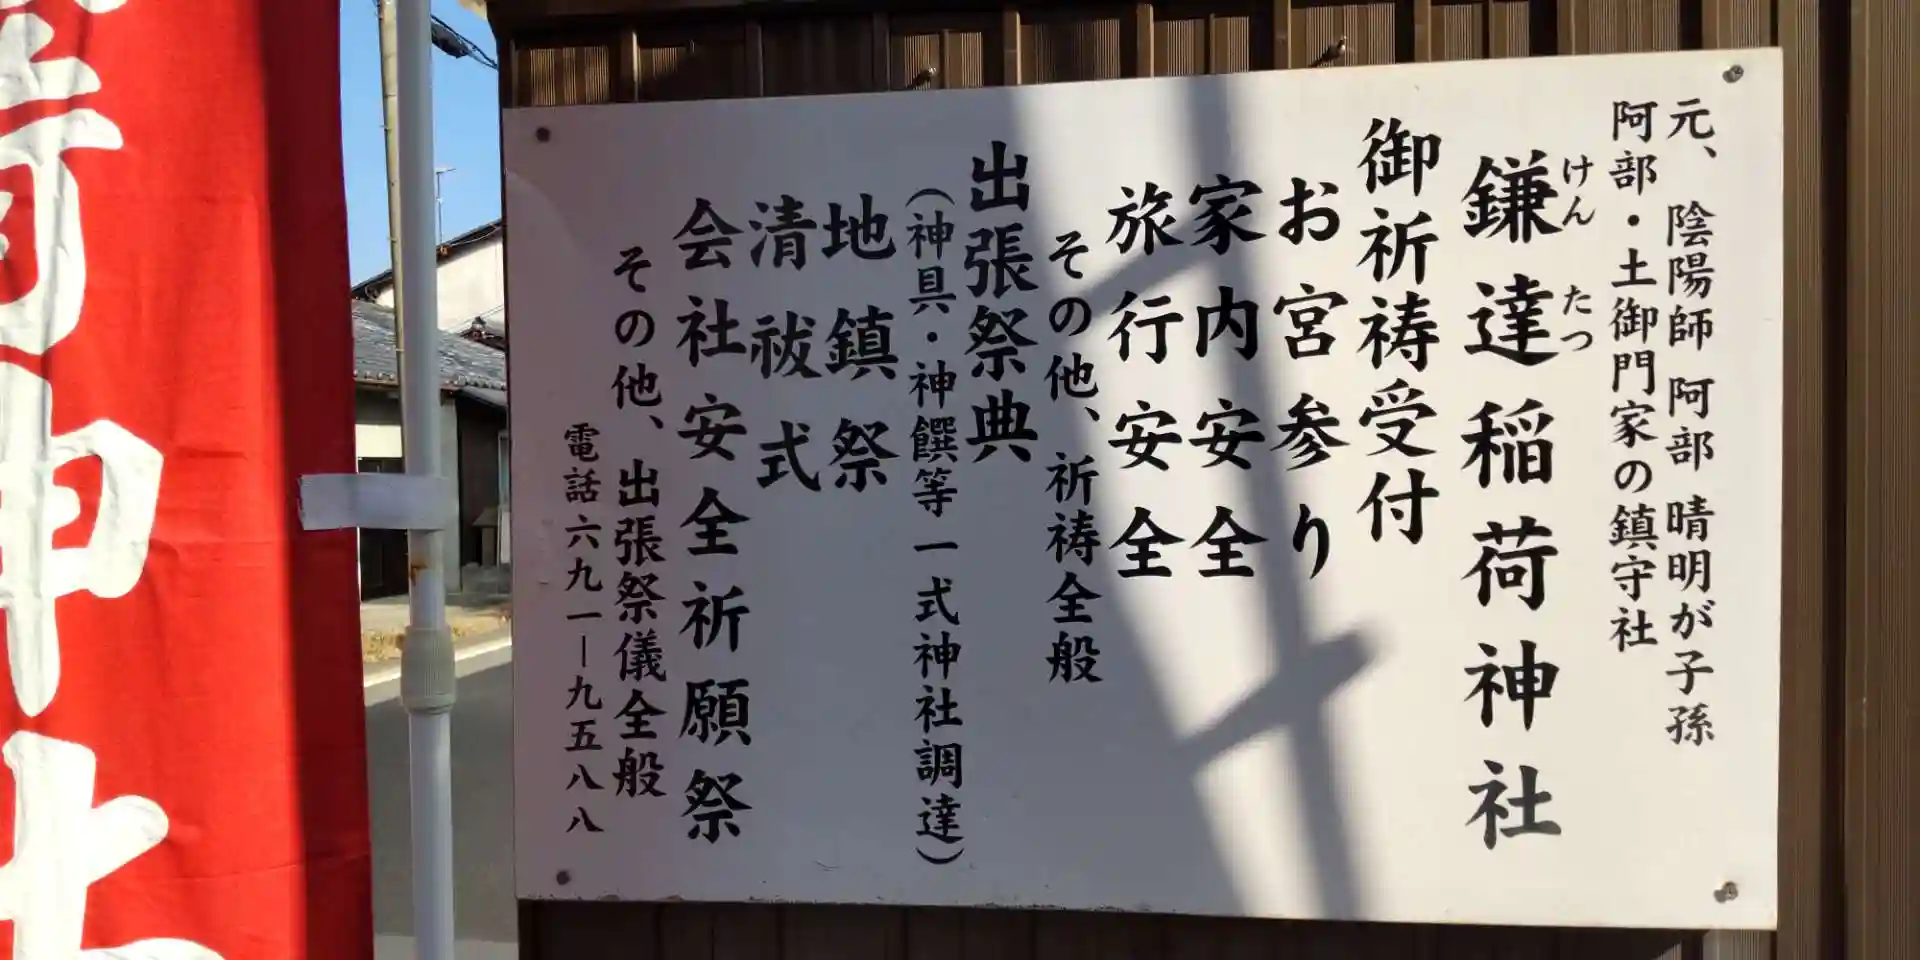 元、陰陽師 阿部 晴明が子孫
阿部・土御門家の鎮守社
鎌達稲荷神社
けん たつ
御祈祷受付
お宮参り
家内安全
旅行安全
その他、祈祷全般
出張祭典
（神具・神饌等一式神社調達）
地鎮祭
清祓式
会社安全祈願祭
その他、出張祭儀全般
電話六九一ー九五八八
荷神社